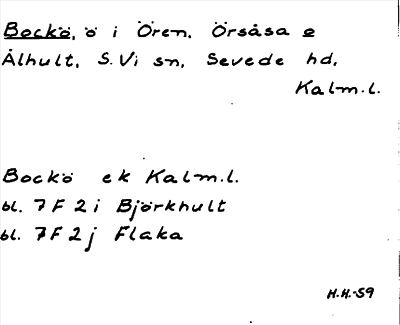 Bockö, ö i Ören, Örsåsa o
Ålhult, S. Vi sn, Sevede hd,
Kalm.l.
Bockö ek Kalm.l.
bl. 7 F 2 i Björkhult
bl. 7 F 2 j Flaka
H.H.-59